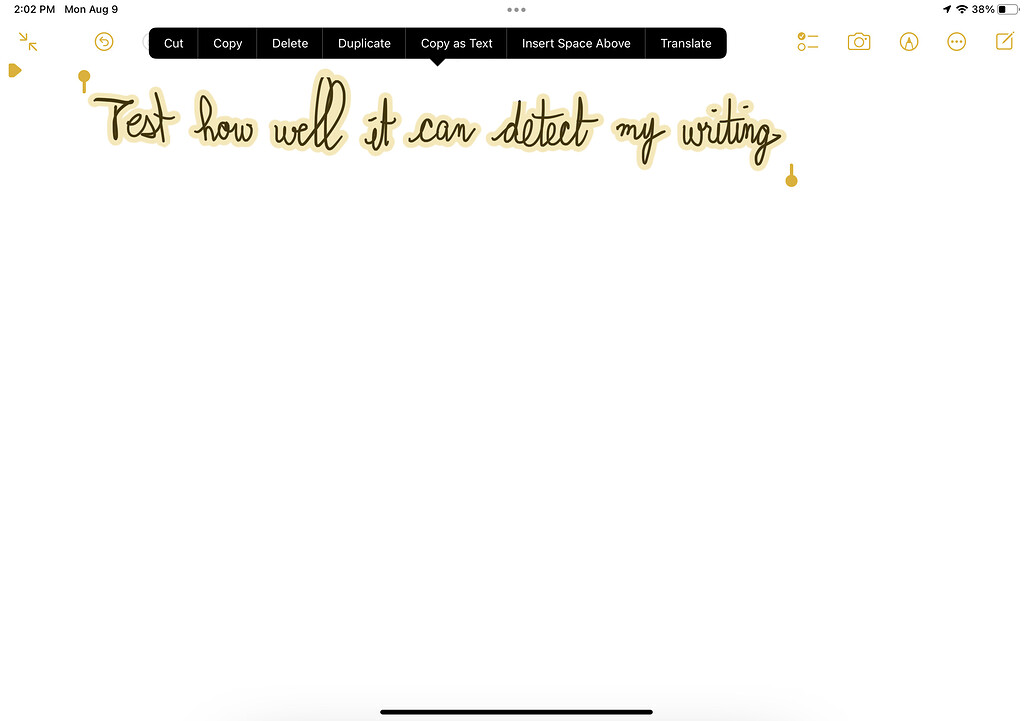 2:02 PM Mon Aug 9 38%
Cut Copy Delete Duplicate Copy as Text Insert Space Above Translate
Test how well it can detect my writing